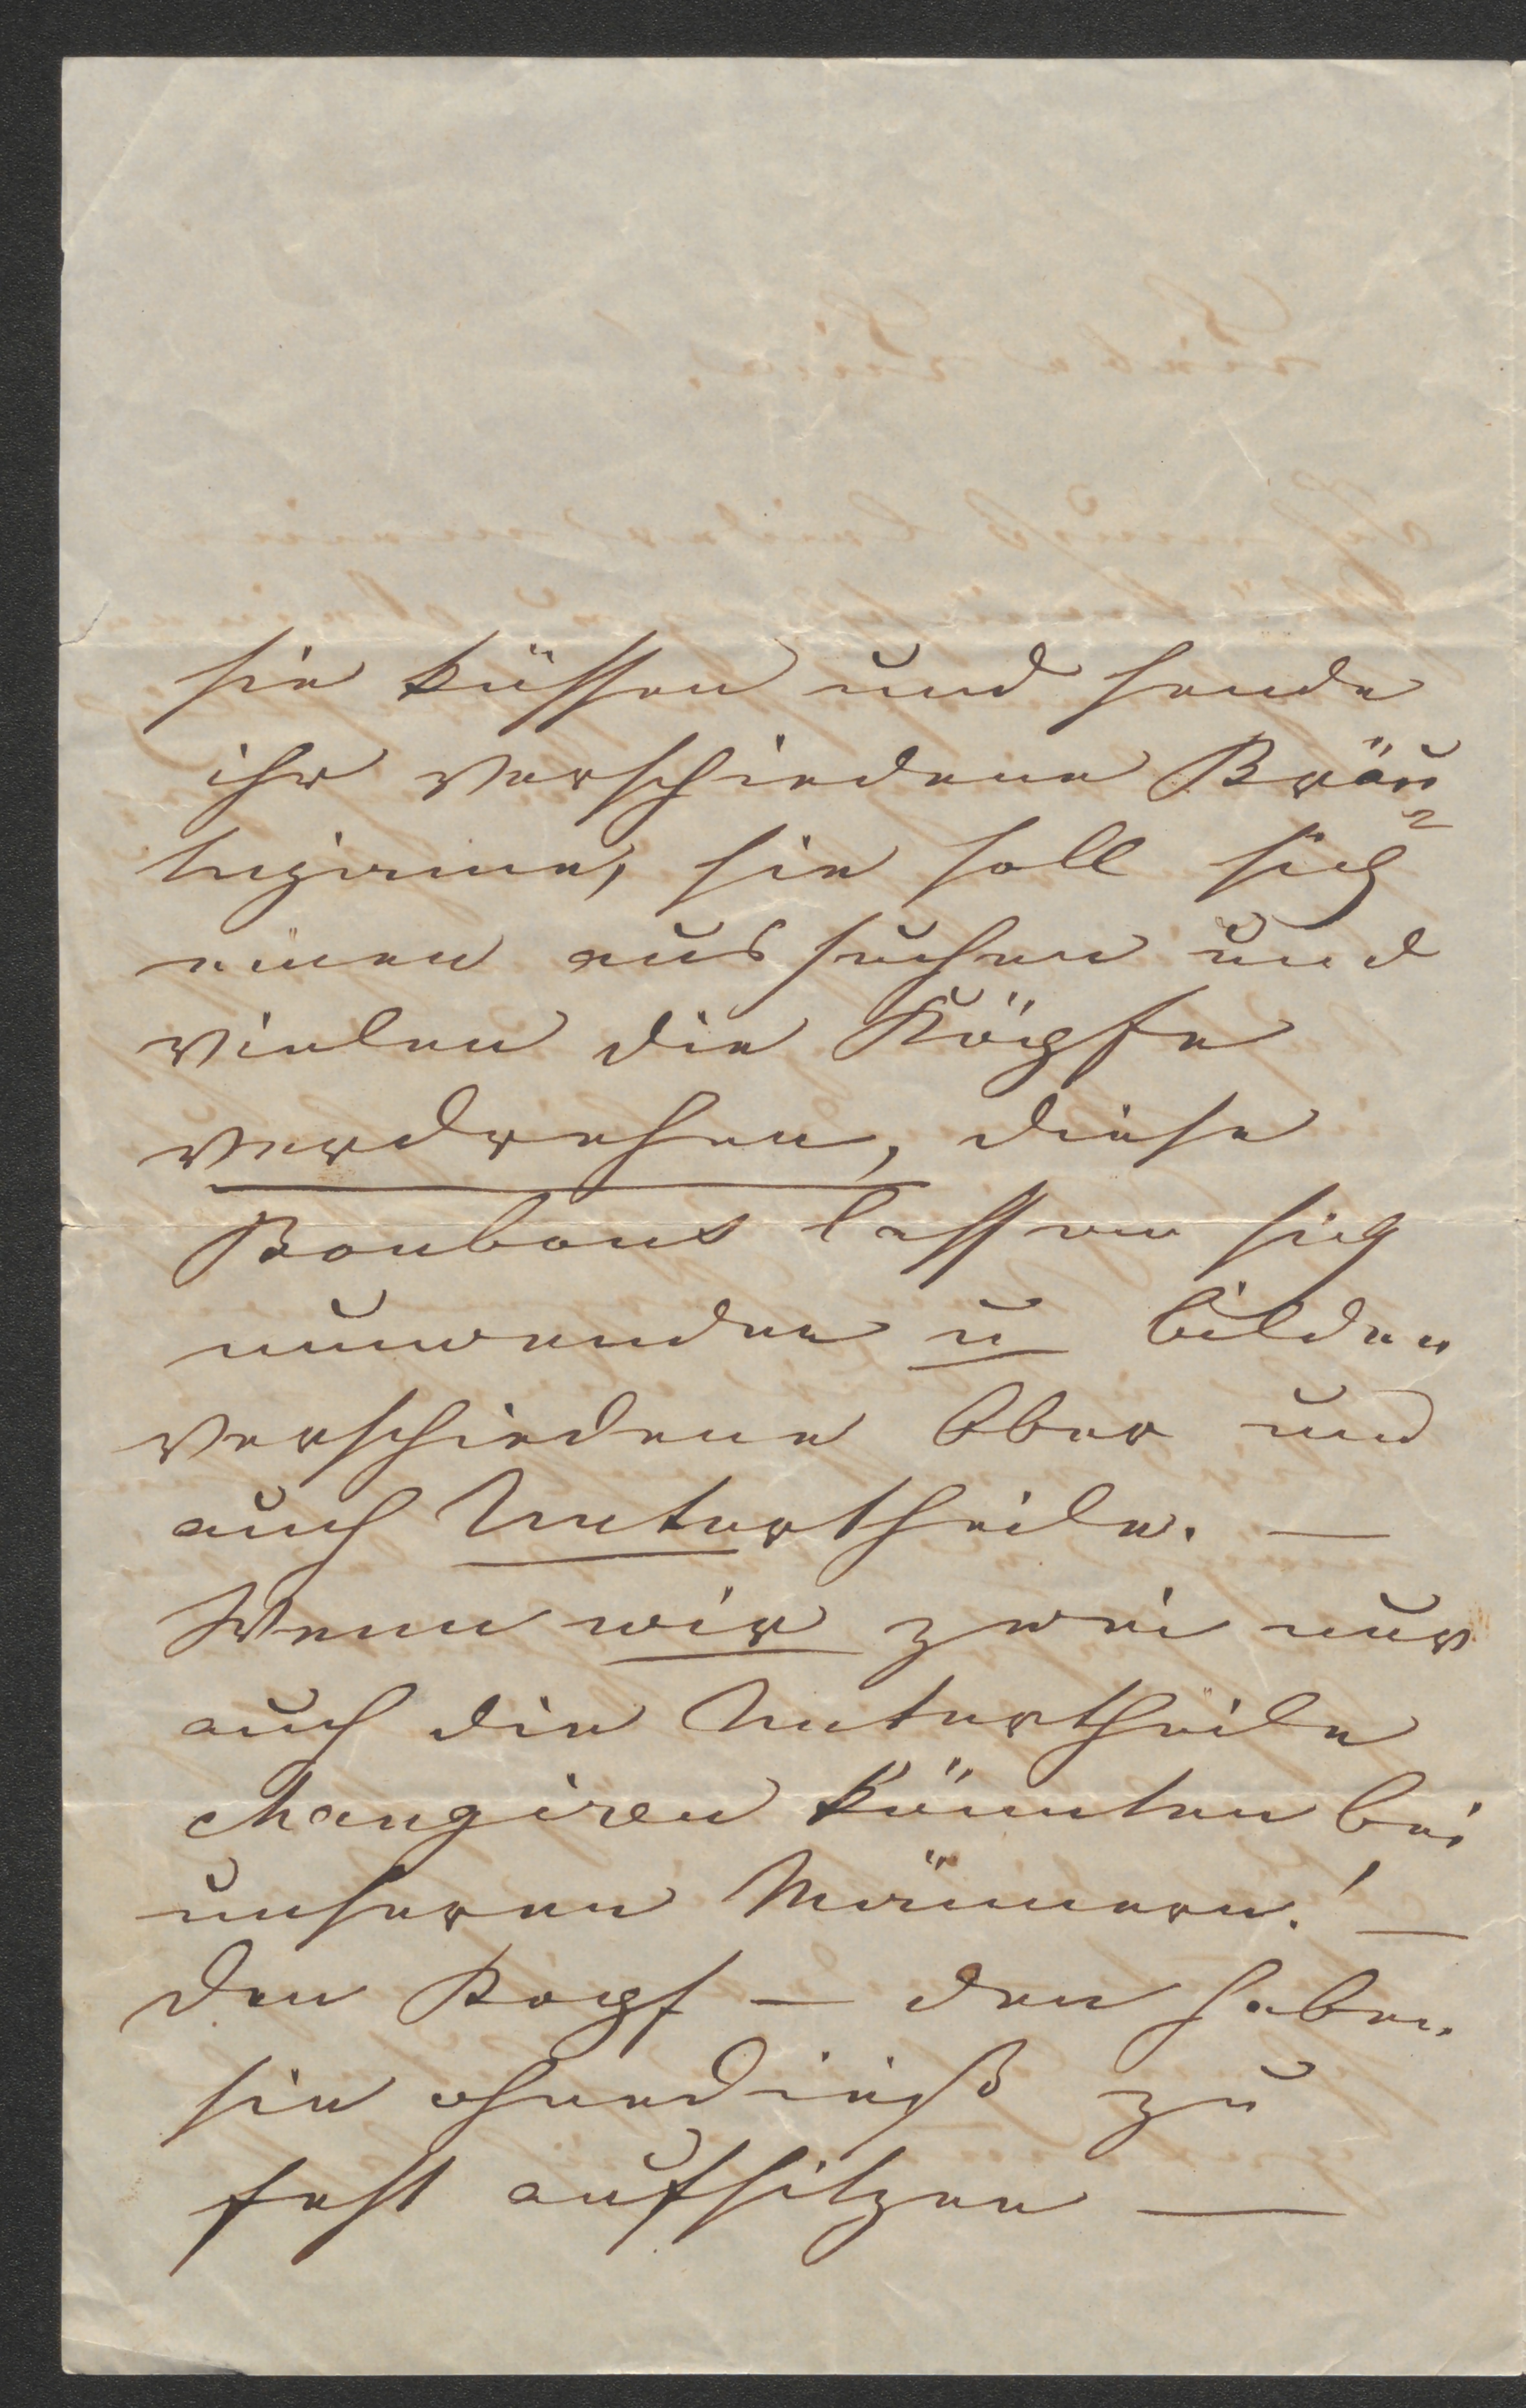 sie küssen und sende
ihr verschiedene Bräu=
tigamme, sie soll sich
einen aussuchen und
vielen die Köpfe
verdrehen, diese
Bonbons lassen sich
umwenden u bilden
verschiedene Ober und
auch Untertheile. —
Wenn wir zwei nur
auch die Untertheile
changiren könnten bei
unseren Männern! —
den Kopf — den haben
sie ohnedieß zu
fest aufsitzen —